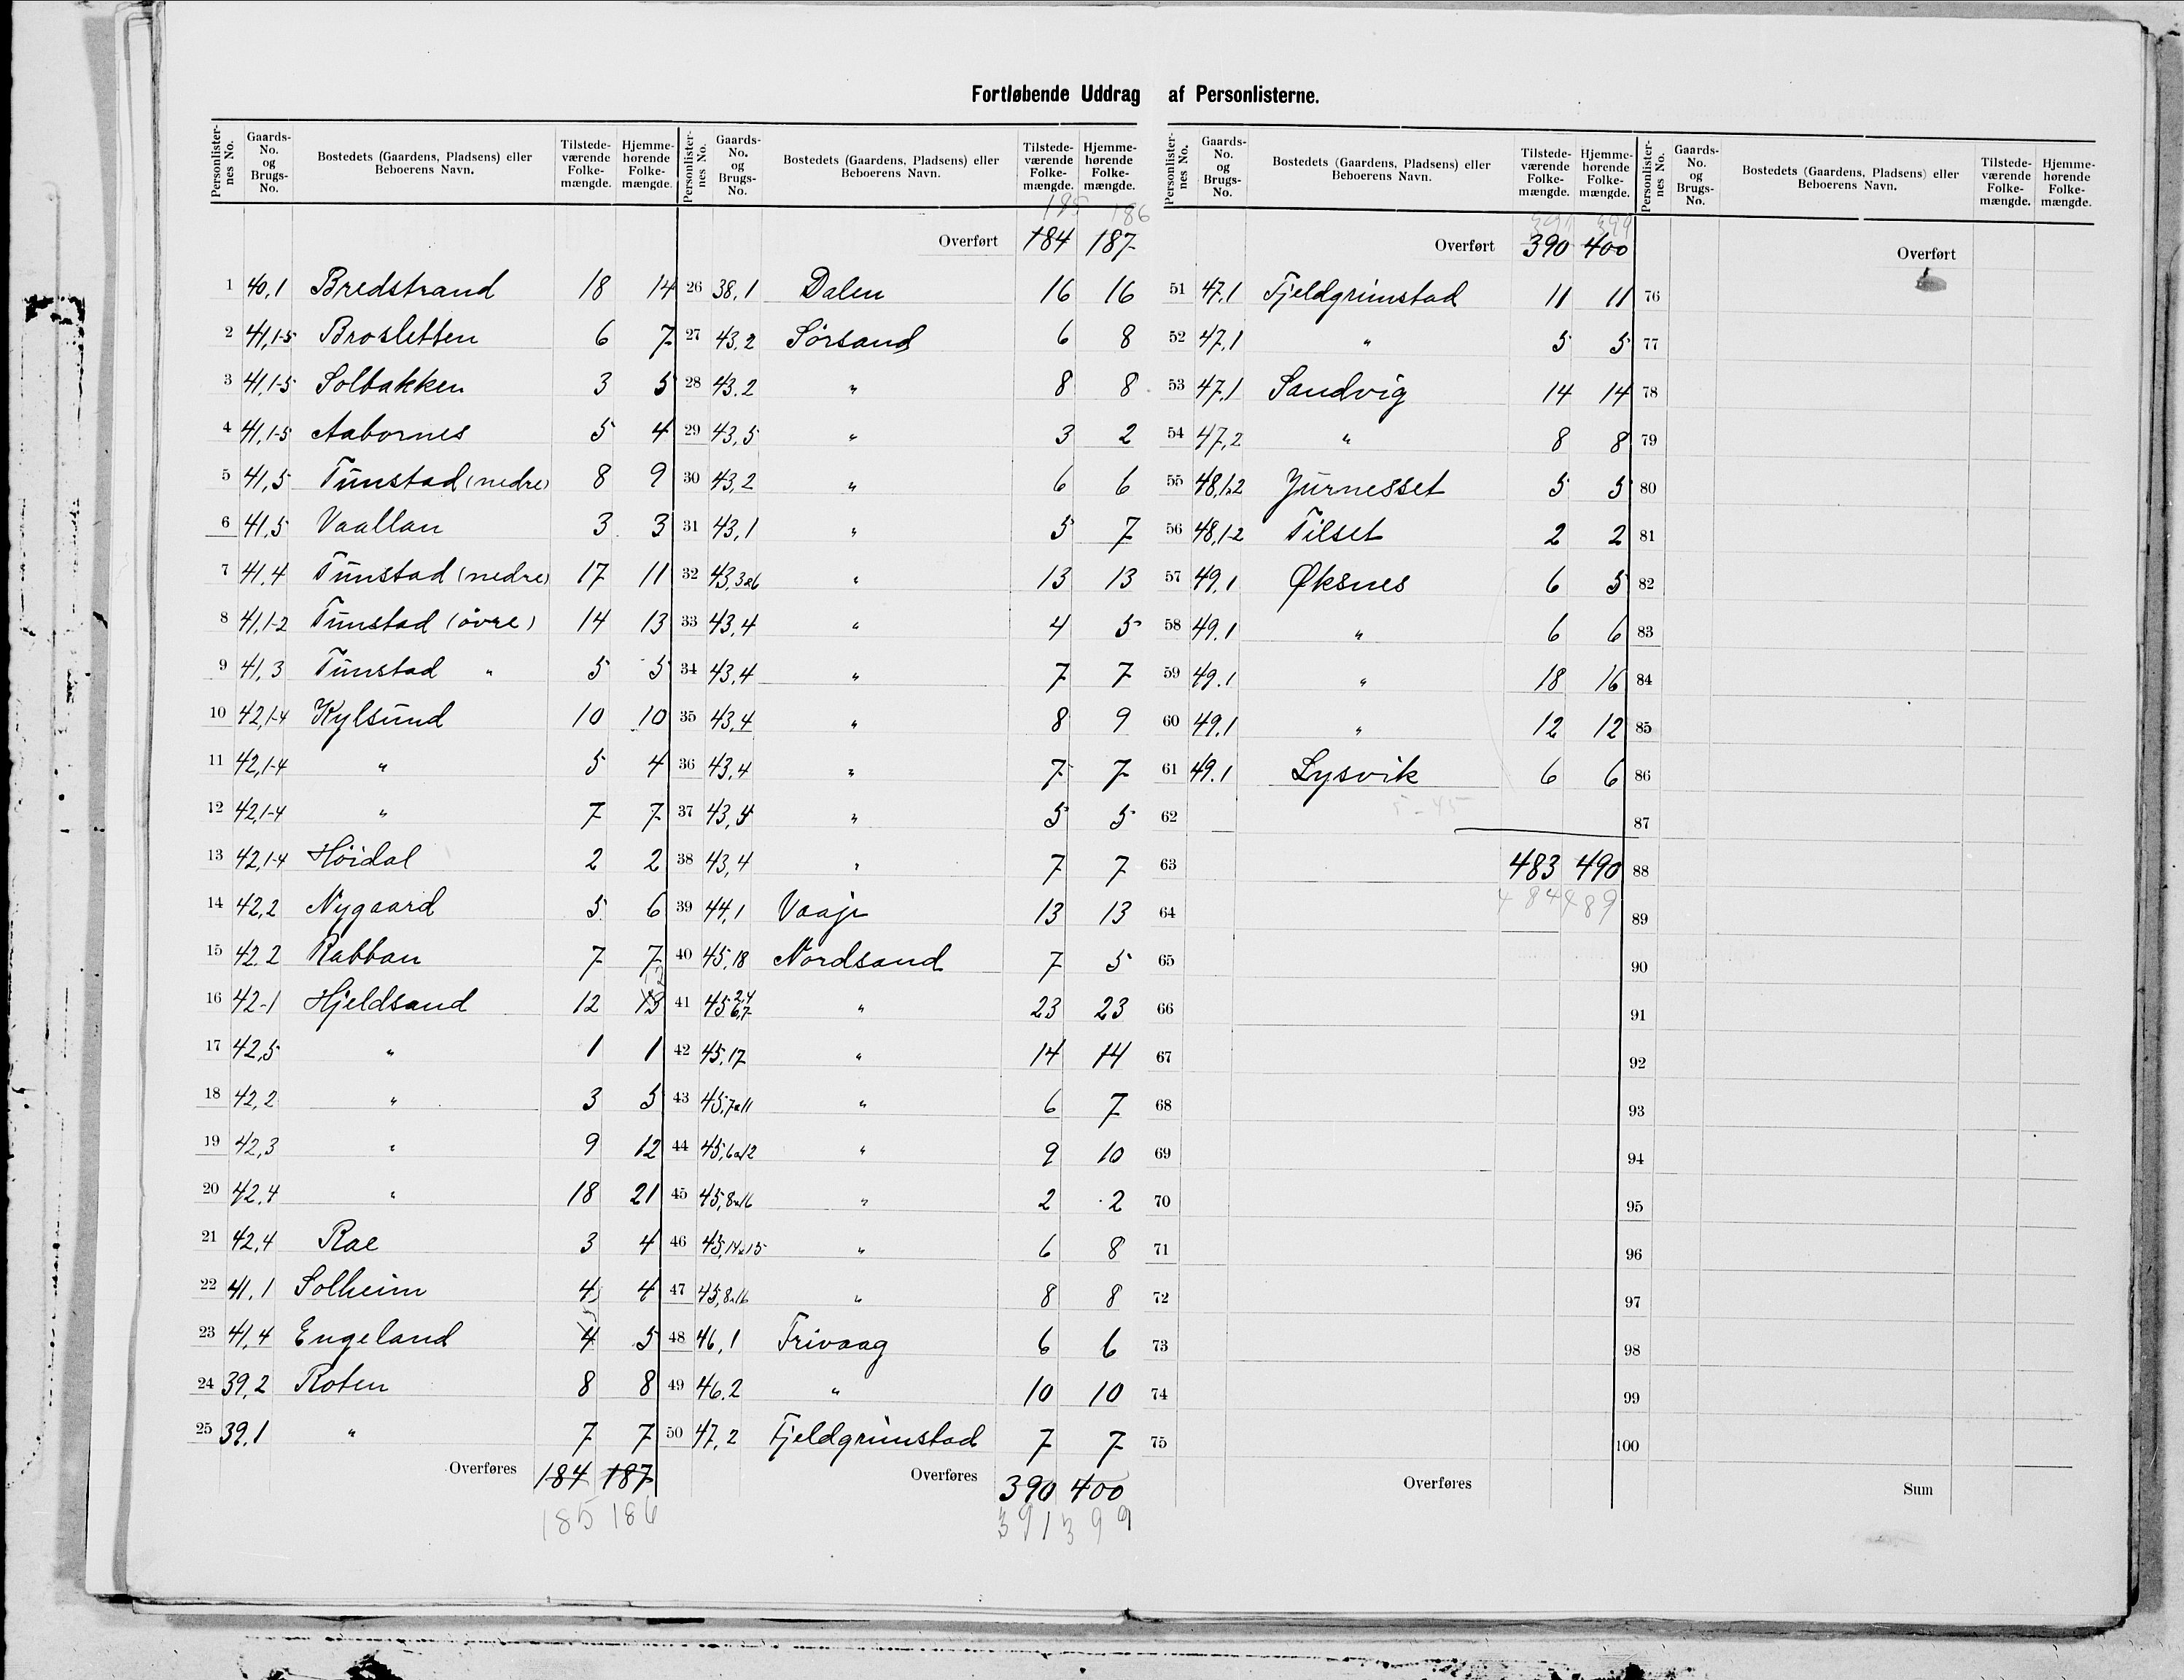 Fortløbende Uddrag af Personlisterne.
Personlisternes No. Gaards-No. og Brugs-No. Bostedets (Gaardens, Pladsens) eller Beboerens Navn. Tilstedeværende Folkemængde. Hjemmehørende Folkemængde.
1 40,1 Bredstrand 18 14
2 41,1-5 Brosletten 6 7
3 41,1-5 Solbakken 3 5
4 41,1-5 Aabornes 5 4
5 41,5 Tunstad (nedre) 8 9
6 41,5 Vaallan 3 3
7 41,4 Tunstad (nedre) 17 11
8 41,1-2 Tunstad (övre) 14 13
9 41,3 Tunstad " 5 5
10 42,1-4 Kylsund 10 10
11 42,1-4 " 5 4
12 42,1-4 " 7 7
13 42,1-4 Höidal 2 2
14 42,2 Nygaard 5 6
15 42.2 Rabban 7 7
16 42-1 Hjeldsand 12 13 12
17 42,5 " 1 1
18 42,2 " 3 5
19 42,3 " 9 12
20 42,4 " 18 21
21 42,4 Rae 3 4
22 41,1 Solheim 4 4
23 41,4 Engeland 4 5 5
24 39,2 Roten 8 8
25 39,1 " 7 7
Overføres 184 187
185 186
Personlisternes No. Gaards-No. og Brugs-No. Bostedets (Gaardens, Pladsens) eller Beboerens Navn. Tilstedeværende Folkemængde. Hjemmehørende Folkemængde.
185 186
Overført 184 187
26 38,1 Dalen 16 16
27 43.2 Sörsand 6 8
28 43.2 " 8 8
29 43,5 " 3 2
30 43,2 " 6 6
31 43,1 " 5 7
32 43,3&6 " 13 13
33 43,4 " 4 5
34 43,4 " 7 7
35 43,4 " 8 9
36 43,4 " 7 7
37 43,4 " 5 5
38 43,4 " 7 7
39 44,1 Vaaje 13 13
40 45,18 Nordsand 7 5
41 45 2,4 6,7 " 23 23
42 45,17 " 14 14
43 45,7&11 " 6 7
44 45,6&12 " 9 10
45 45,8&16 " 2 2
46 45,14&15 " 6 8
47 45,8&16 " 8 8
48 46,1 Frivaag 6 6
49 46.2 " 10 10
50 47,2 Fjeldgrimstad 7 7
Overføres 390 400
391 399
Personlisternes No. Gaards-No. og Brugs-No. Bostedets (Gaardens, Pladsens) eller Beboerens Navn. Tilstedeværende Folkemængde. Hjemmehørende Folkemængde.
391 399
Overført 390 400
51 47,1 Fjeldgrimstad 11 11
52 47,1 " 5 5
53 47,1 Sandvig 14 14
54 47,2 " 8 8
55 48,1&2 Jurnesset 5 5
56 48,1-2 Tilset 2 2
57 49,1 Øksnes 6 5
58 49,1 " 6 6
59 49.1 " 18 16
60 49,1 " 12 12
61 49.1 Lysvik 6 6
62
63 483 490
64 484 489
65
66
67
68
69
70
71
72
73
74
75
Overføres
Personlisternes No. Gaards-No. og Brugs-No. Bostedets (Gaardens, Pladsens) eller Beboerens Navn. Tilstedeværende Folkemængde. Hjemmehørende Folkemængde.
Overført
76
77
78
79
80
81
82
83
84
85
86
87
88
89
90
91
92
93
94
95
96
97
98
99
100
Sum